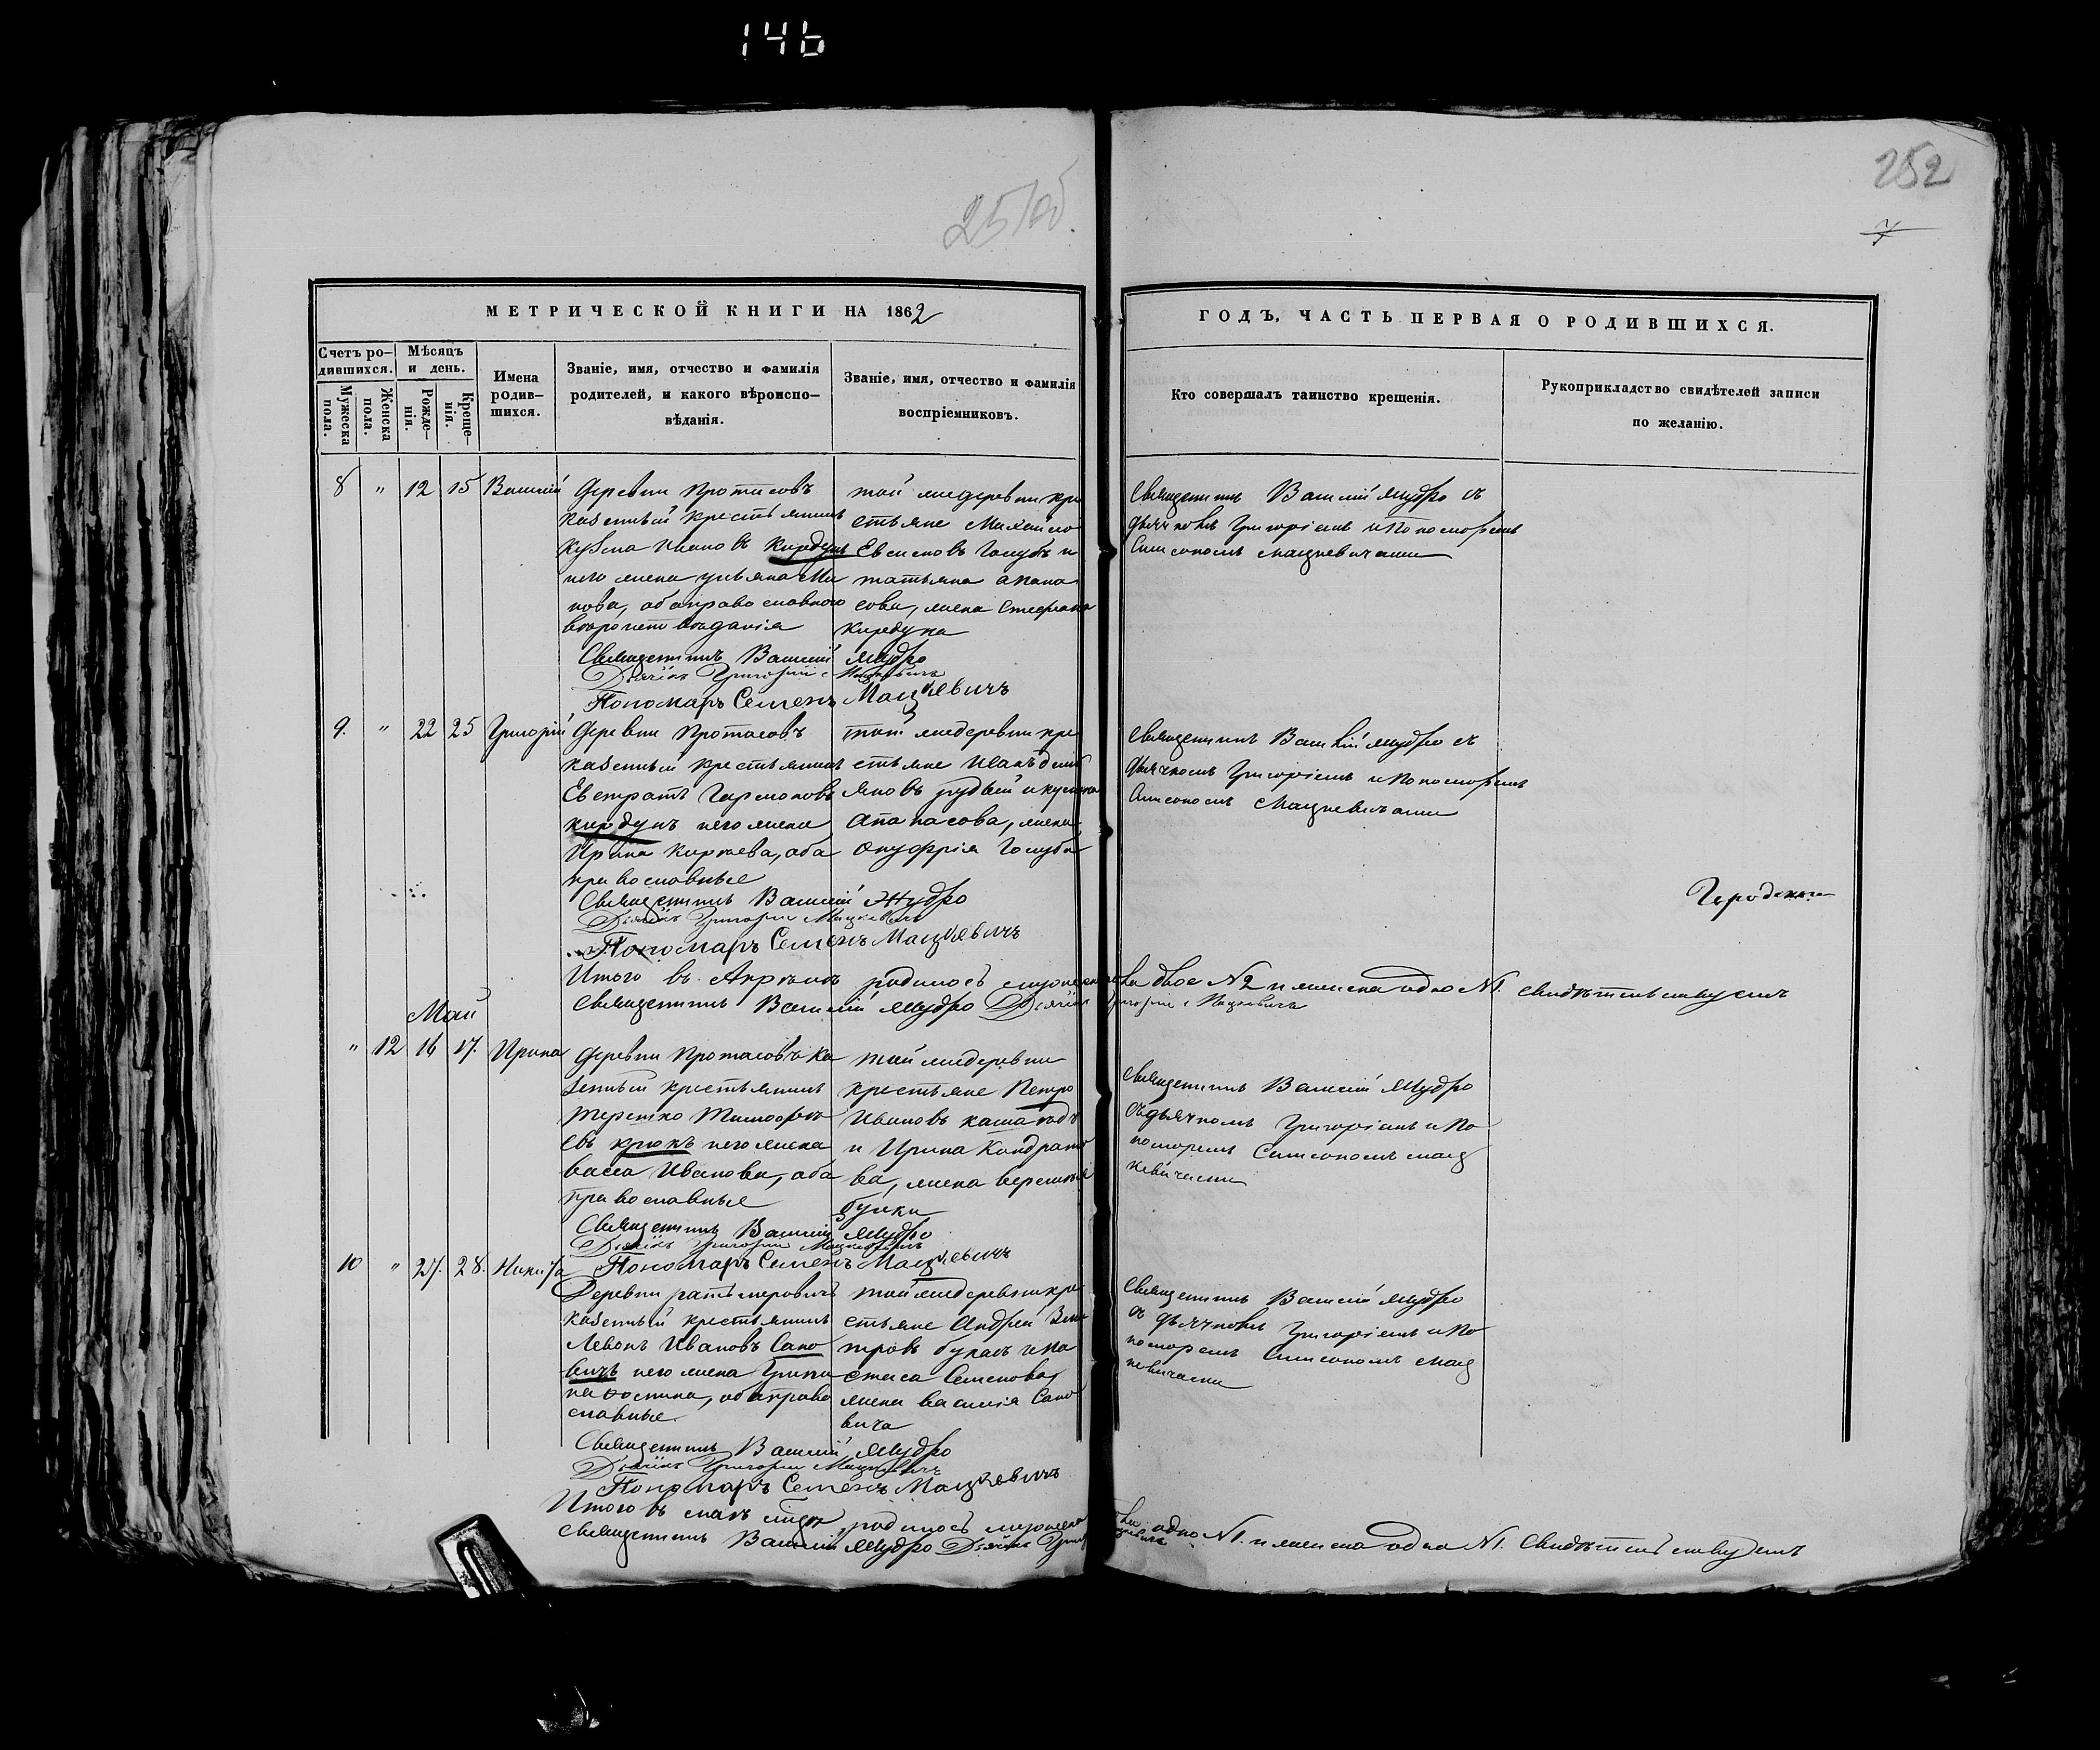 146
251об.
252
7
МЕТРИЧЕСКОЙ КНИГИ НА 1862
ГОДЪ, ЧАСТЬ ПЕРВАЯ О РОДИВШИХСЯ.
Счетъ ро-
дившихся.
Мужеска
пола.
Женска
пола.
Мѣсяцъ
и день.
Рожде-
нія.
Креще-
нія.
Имена
родив-
шихся.
Званіе, имя, отчество и фамилія
родителей, и какого вѣроиспо-
вѣданія.
Званіе, имя, отчество и фамилія
воспріемниковъ.
Кто совершалъ таинство крещенія.
Рукоприкладство свидѣтелей записи
по желанію.
8 " 12 15 Василій
Деревни Протасовъ
казенный крестьянинъ
Кузма Ивановъ Кирдунъ
и его жена Ульяна
нова, оба православного
вѣроисповѣданія
той же деревни кре
стьяне Михаило
Евсиеовъ Голубъ и
татьяна
сова, жена Стефана
Кирдуна
Священникъ Василій Мудро съ
дьячкомъ Григоріемъ и Пономаремъ
Симеономъ Мацкевичами
Священникъ Василій Мудро
Дьячёкъ Григорій Мацкевичъ
Пономаръ Семенъ Мацкевичъ
9. " 22 25 Григорій
Деревни Протасовъ
казенный крестьянинъ
Евстратъ
кирдунъ и его жена
Ирина оба
православные
той же деревни кре
стьяне Иванъ
яновъ
Апанасова, жена
Онуфрія Голуба
Священникъ Василій Мудро съ
дьячкомъ Григоріемъ и Пономаремъ
Симеономъ Мацкевичами
Священникъ Василій Мудро
Дьячёкъ Григорій Мацкевичъ
Пономаръ Семенъ Мацкевичъ
Итого въ Апрѣлѣ родилось мужеска двое №2 и женска одно №1. свидѣтельствуемъ
Священникъ Василій Мудро Дьячёкъ Григорій Мацкевичъ
Май
" 12 16 17. Ирина
Деревни Протасовъ ка
зенный крестьянинъ
Терешко Тимофѣе
евъ крюкъ и его жена
васса Иванова, оба
православные
той же деревни
крестьяне Петро
Ивановъ
и Ирина Кондрато
ва, жена
Священникъ Василій Мудро
съ дьячкомъ Григоріемъ и По
номаремъ Симеономъ Мац
кевичами
Священникъ Василій Мудро
Дьячёкъ Григорій Мацкевичъ
Пономаръ Семенъ Мацкевичъ
10 " 27. 28. Никита
Деревни
казенный крестьянинъ
Левонъ Ивановъ Сано
вичъ и его жена
оба право
славные.
той же деревни кре
стьяне Андрей
и На
стаса Семенова,
жена василія Сано
вича
Священникъ Василій Мудро
съ дьячкомъ Григоріемъ и По
номаремъ Симеономъ Мац
кевичами
Священникъ Василій Мудро
Дьячёкъ Григорій Мацкевичъ
Пономаръ Семенъ Мацкевичъ
Итого въ маѣ родилось мужеска одно №1. и женска одна №1. Свидѣтельствуемъ
Священникъ Василій Мудро Дьячёкъ